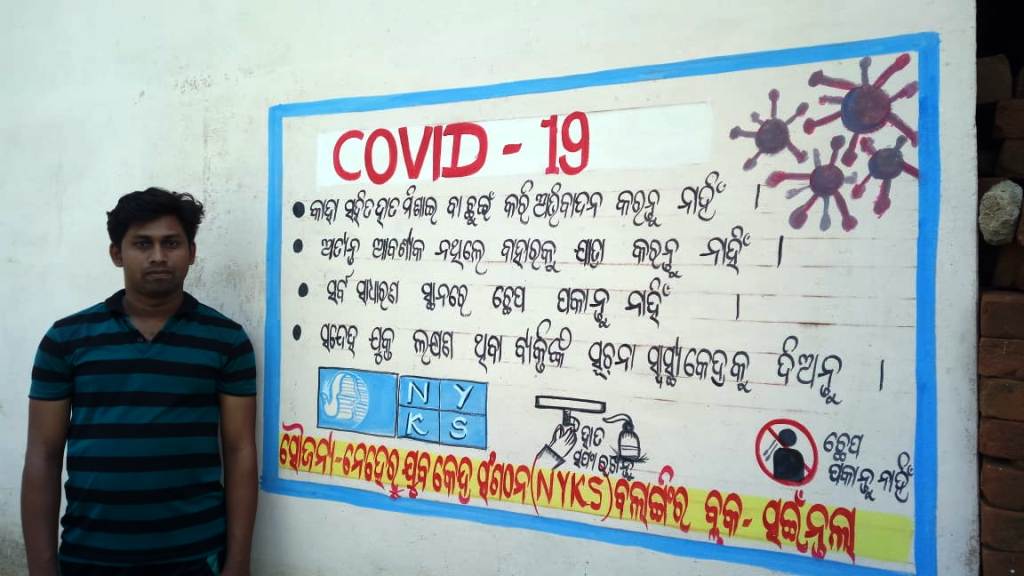 COVID - 19
• କାହା ସହିତ ହାତ ମିଶାଇ ବା ଛୁଇଁ କରି ଅଭିବାଦନ କରନ୍ତୁ ନାହିଁ ।
• ଅତ୍ୟନ୍ତ ଆବଶ୍ୟକ ନଥିଲେ ବାହାରକୁ ଯାତ୍ରା କରନ୍ତୁ ନାହିଁ ।
• ସର୍ବ ସାଧାରଣ ସ୍ଥାନରେ ଛେପ ପକାନ୍ତୁ ନାହିଁ ।
• ସନ୍ଦେହ ଯୁକ୍ତ ଲକ୍ଷଣ ଥିବା ବ୍ୟକ୍ତିଙ୍କ ସୂଚନା ସ୍ୱାସ୍ଥ୍ୟ କେନ୍ଦ୍ରକୁ ଦିଅନ୍ତୁ ।
N Y
K S
ହାତ
ରଖନ୍ତୁ
ଛେପ
ପକାନ୍ତୁ ନାହିଁ
ସୌଜନ୍ୟ-ନେହେରୁ ଯୁବ କେନ୍ଦ୍ର ସଂଗଠନ (NYKS) ବଲାଙ୍ଗିର ବ୍ଲକ-